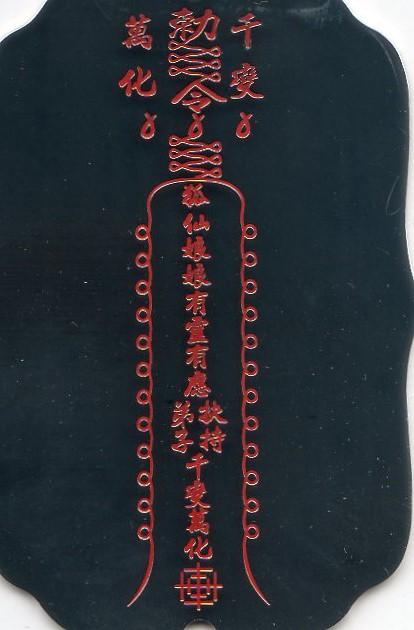 勅令
千變
萬化
狐仙娘娘有靈有應
扶持
弟子
千變萬化